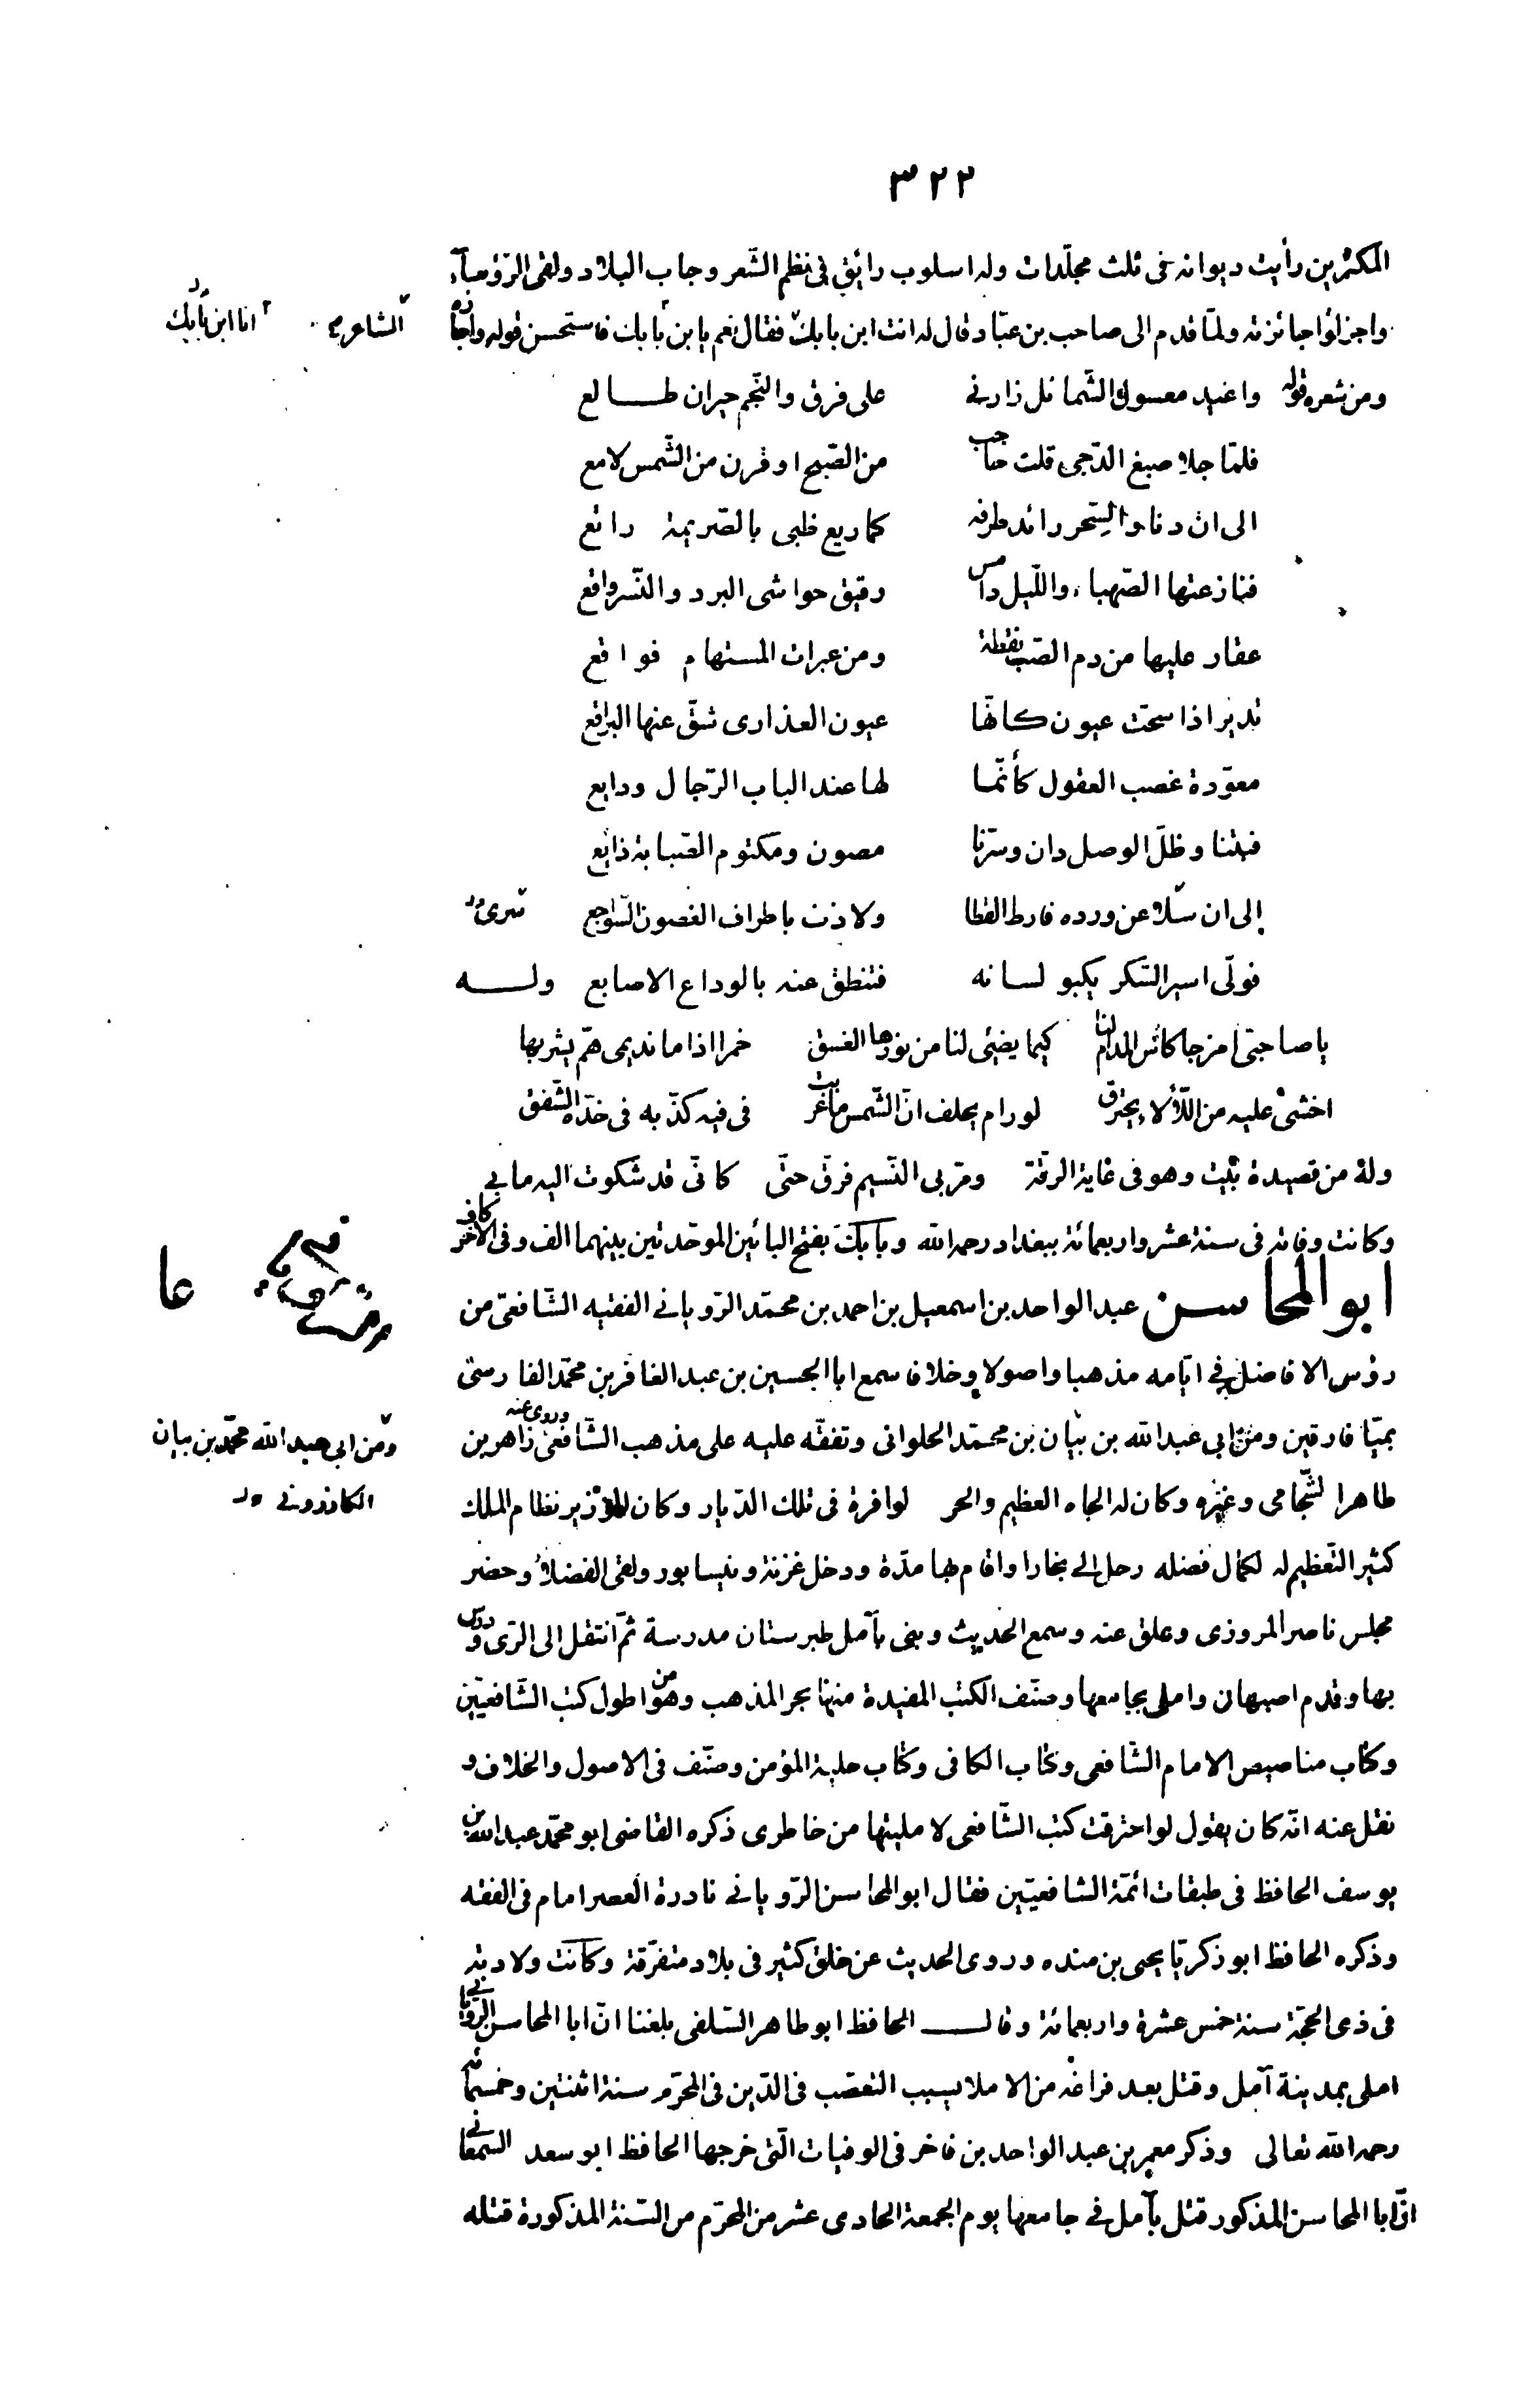 ٣٢٢
المكثرين رأيت ديوانه فى ثلث مجلّدات وله اسلوب رايق فى نظم الشّعر وجاب البلاد ولقى الرّؤساء
واجزلوا جائزته ولمّا قدم الى صاحب بن عبّاد قال له انت ابن بابك فقال نعم يا بن بابك فاستحسن قوله واجازه
الشاعر م
انا ابن بابك
ومن شعره قوله واغيد معسول الشّمائل زارنى على فرق والنّجم حيران طالع
فلمّا جلا صبغ الدّجى قلت حاجب من الصّبح او قرن من الشّمس لامع
الى ان دنا والسّحر رائد طرفه كما ريع ظبى بالصّريمة رائع
فنازعتها الصّهباء والليل دامس رقيق حواشى البرد والنّسر واقع
عقار عليها من دم الصّب نقطة ومن عبرات المستهام فواقع
تدير اذا سحّت عيون كانّها عيون العذارى شقّ عنها البراقع
معوّدة غصب العقول كأنّما لها عند الباب الرّجال ودايع
فبتنا وظلّ الوصل دان وسرّنا مصون ومكتوم الصّبابة ذايع
إلى ان سلا عن ورده فارط القطا ولاذت باطراف الغصون السّواجع
فولّى اسير السّكر يكبو لسانه فتنطق عنه بالوداع الاصابع وله
يا صاحبىّ امزجا كاس المدام لنا كيما يضيئ لنا من نورها الغسق خمرا اذا ما نديمى همّ يشربها
اخشى عليه من اللّألاء يحترق لو رام يحلف انّ الشّمس ما غربت فى فيه كذّبه فى خدّه الشّفق
وله من قصيدة بيت وهو فى غاية الرقّة ومرّ بى النّسيم فرقّ حتّى كانّى قد شكوت اليه ما بى
وكانت وفاته فى سنة عشر واربعمائة ببغداد رحمه الله وبابك بفتح البائين الموحّدتين بينهما الف وفى الاخر كاف
ابو المحاسن عبد الواحد بن اسمعيل بن احمد بن محمّد الرّويانى الفقيه الشّافعىّ من
رؤس الافاضل فى ايّامه مذهبا واصولا وخلافا سمع ابا الحسين بن عبد الغافر بن محمّد الفارسىّ
بميّافارقين ومن ابى عبد الله بن بيان بن محمّد الحلوانى وتفقّه عليه على مذهب الشّافعىّ وروى عنه زاهر بن
ومن ابى عبد الله محمّد بن بيان
الكازرونى
طاهر الشّحّامى وغيره وكان له الجاه العظيم والحر لوافرة فى تلك الدّيار وكان الوزير نظام الملك
كثير التّعظيم له لكمال فضله رحل الى بخارا واقام بها مدّة ودخل غزنة ونيسابور ولقى الفضلاء وحضر
مجلس ناصر المروزى وعلق عنه وسمع الحديث وبنى بآمل طبرستان مدرسة ثمّ انتقل الى الرّى ودرّس
بها وقدم اصبهان واملى بجامعها وصنّف الكتب المفيدة منها بحر المذهب وهو من اطول كتب الشّافعيّين
وكتاب مناصيص الامام الشّافعى وكتاب الكافى وكتاب حلية المؤمن وصنّف فى الاصول والخلاف و
نقل عنه انّه كان يقول لو احترقت كتب الشّافعى لامليتها من خاطرى ذكره القاضى ابو محمّد عبد الله بن
يوسف الحافظ فى طبقات ائمّة الشافعيّين فقال ابو المحاسن الرّويانى نادرة العصر امام فى الفقه
وذكره الحافظ ابو ذكريّا يحيى بن منده وروى الحديث عن خلق كثير فى بلاد متفرّقة وكانت ولادته
فى ذى الحجّة سنة خمس عشرة واربعمائة وقال الحافظ ابو طاهر السّلفى بلغنا انّ ابا المحاسن الرّويانى
املى بمدينة آمل وقتل بعد فراغه من الاملا بسبب التعصّب فى الدّين فى المحرّم سنة اثنتين وخمسمائة
رحمه الله تعالى وذكر معمر بن عبد الواحد بن فاخر فى الوفيات الّتى خرجها الحافظ ابو سعد السّمعانى
انّ ابا المحاسن المذكور قتل بآمل فى جامعها يوم الجمعة الحادى عشر من المحرّم من السّنة المذكورة قتله